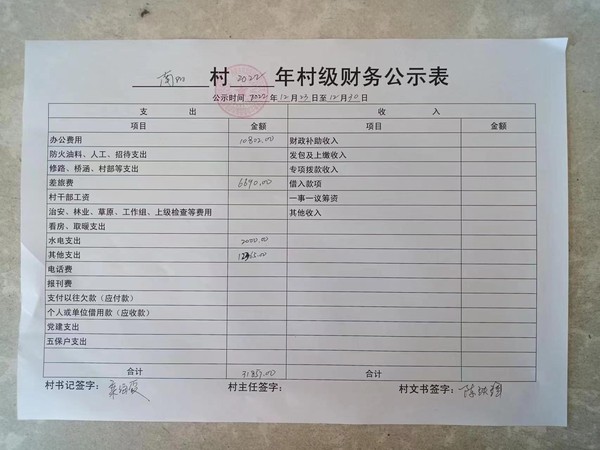 村 2022 年村级财务公示表
公示时间 2022 年 12 月 23 日至 12 月 30 日
支 出 收 入
项目 金额 项目 金额
办公费用 10802.00 财政补助收入
防火油料、人工、招待支出 发包及上缴收入
修路、桥涵、村部等支出 专项拨款收入
差旅费 6690.00 借入款项
村干部工资 一事一议筹资
治安、林业、草原、工作组、上级检查等费用 其他收入
看房、取暖支出
水电支出 2000.00
其他支出
电话费
报刊费
支付以往欠款（应付款）
个人或单位借用款（应收款）
党建支出
五保户支出
合计 31857.00 合计
村书记签字： 村主任签字： 村文书签字：